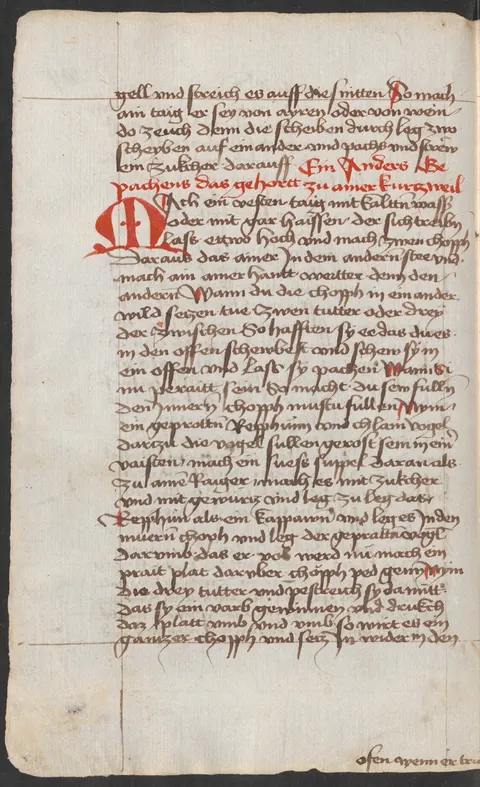 gell vnd streich es auff die snitten So mach
ain taig er sey von ayren oder von wein
do zeuch denn die scheiben durch leg zwo
scheyben auf ein ander vnd pachs vnd strew
ein zukher darauff Ein Anders Ge
pachens das gehortt zu ainer kurczweil
Mach ein vesten taig mit kalttn wass
oder mit gar haissen der sich treibn
lass ettwo hoch vnd mach zwen chopph
daraus das ainer In dem andern stee vnd
mach ain ainer hantt weitter denn den
andern Wann du die chopph in ein ander
wild seczen tue zwen tutter oder drey
der zwischen So hafften sy ee das du es
in den offen schewbest vnd schew sy in
ein offen vnd lass sy pachen Wann si
nu peraitt sein So macht du sew fulln
den Innern chopph mustu fullen Nym
ein geprattn Repphun vnd chlain vogel
darzu die vogel sullen gerost sein in ein
vaisten mach ein suess suppel daran als
zu aine Raiger mach es mit zukher
vnd mit gewurcz vnd leg zu leg das
Repphun als ein kappawn vnd leg es In den
innern choph vnd leg der gepratten vogl
darumb das er vol werd nu mach ein
prait plat daruber chopph ped Nym
die drey tutter vnd pestreich sy da mitt
das sy ein varb gewinnen vnd drukch
daz platt vmb vnd vmb so wirt es ein
ganczer chopph vnd secz In wider in den
ofen wenn er